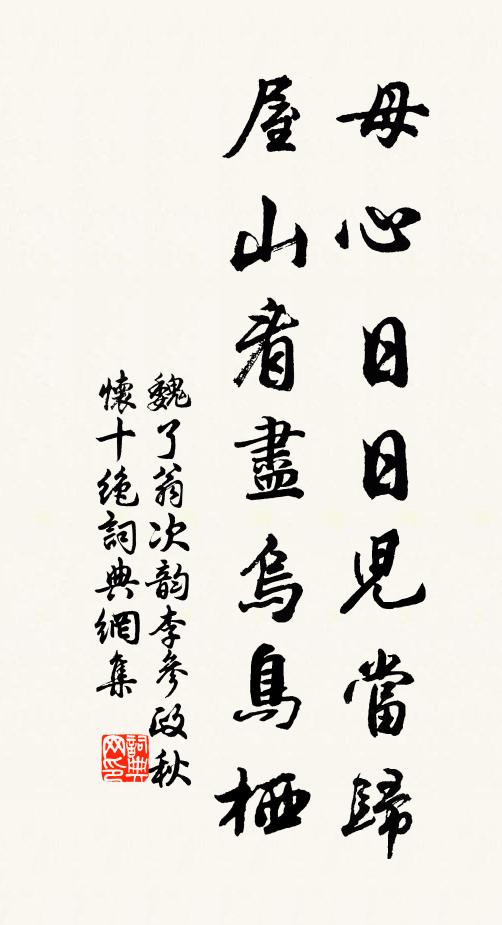 母心日日兒當歸
屋山看盡烏鳥栖
魏了翁次韵李參政秋
懷十絶詞典網集
詞典
网印